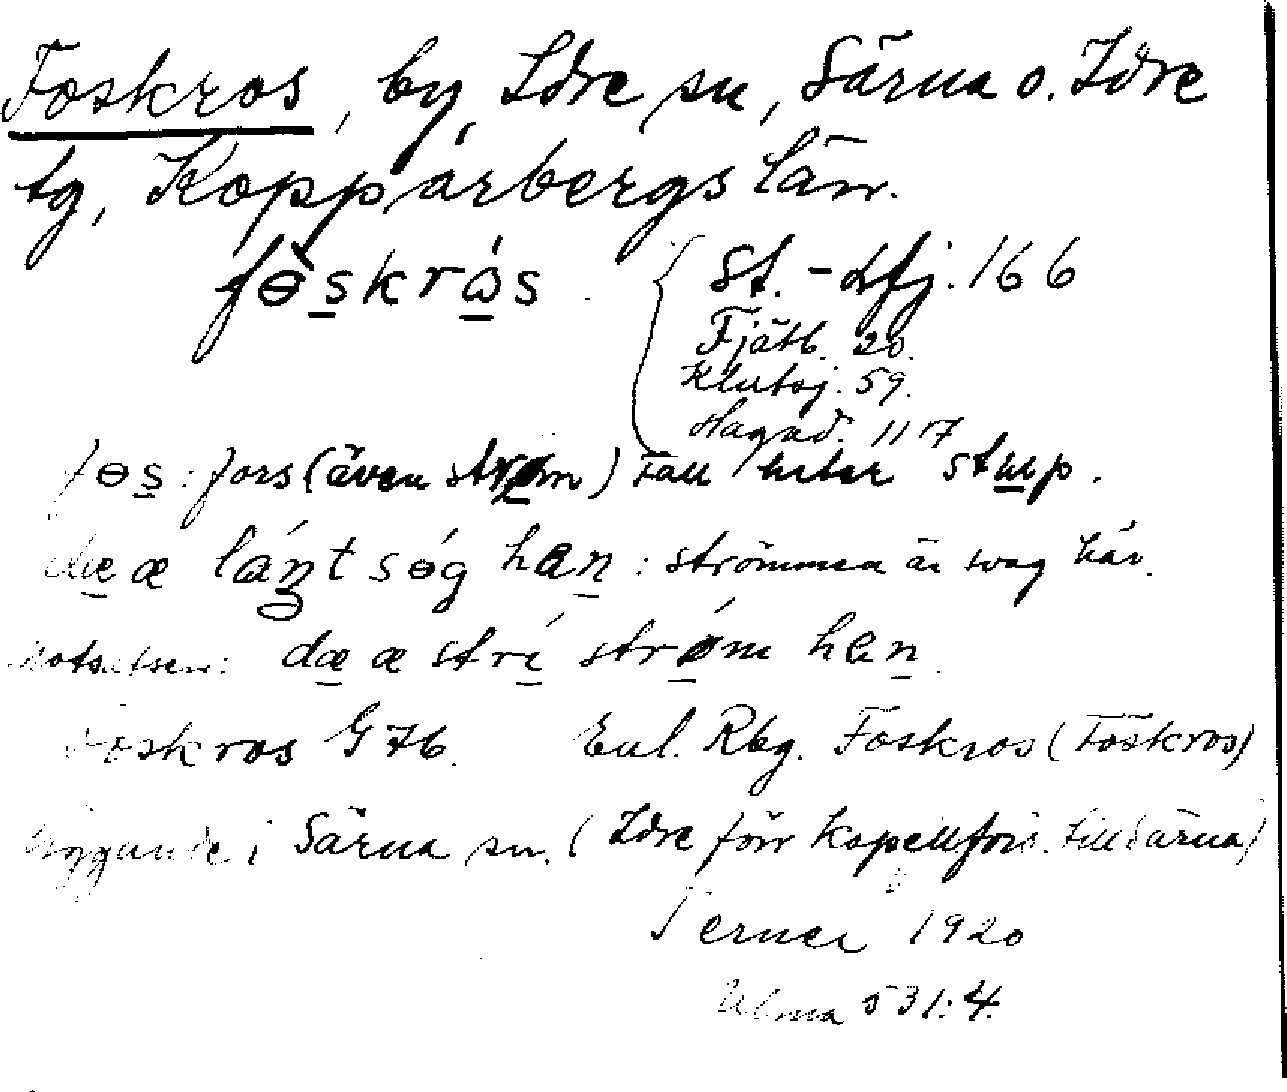 Foskros, by, Idre sn, Särna o. Idre
tg, Kopparbergs län.
fɵ̀skrɷ́s. { St.-Lfj. 166
Fjätb. 20.
Klutsj. 59.
Hagåd. 117
fɵs: fors (även strøm) Fall heter stup.
dæ æ láŋtsɵ́g hen: strömmen är svag här.
Motsatsen: dæ æ strí strǿm hen.
Foskros G 76. Enl. Rbg. Foskros (Foskros)
liggande i Särna sn. (Idre förr kapellförs. till Särna)
Terner 1920
Ulma 531:4.